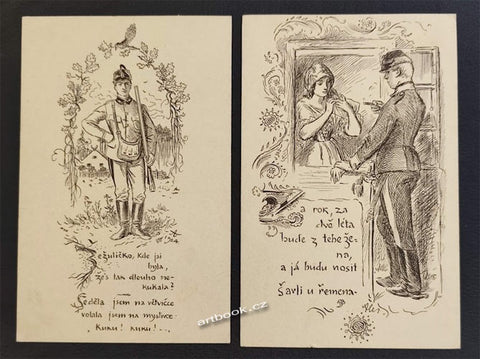 Žežuličko, kde jsi
byla,
žes tak dlouho ne-
kukala?
Seděla jsem na větvičce
volala jsem na myslivce
Kuku! kuku!...
Za rok, za
dvě léta
bude z tebe že-
na,
a já budu nosit
šavli u řemena.
artbook.cz